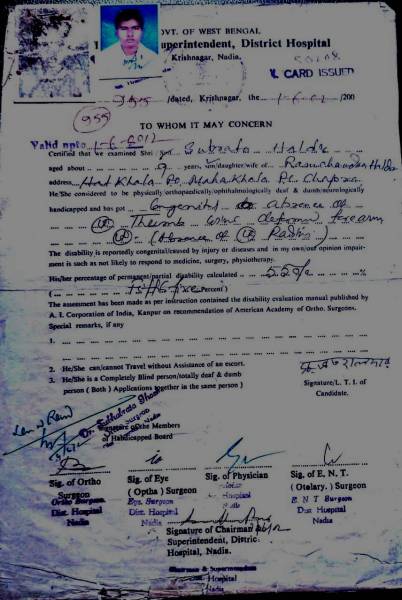 OVT. OF WEST BENGAL
uperintendent, District Hospital
Krishnagar, Nadia.
V. CARD ISSUED
/dated, Krishnagar, the 1-6-0 /200
955
TO WHOM IT MAY CONCERN
Valid upto 1-6-2012
Certified that we examined Shri Subrata Halder
aged about 9 years, son/daughter/wife of
address Hat Khola Po. Mahakhola P.S. Chapra
He/She considered to be physically/orthopaedically/ophthalmologically deaf & dumb/neurologically
handicapped and has got Congenital absence of
Thumb deformed forearm
(Absence of Radius)
The disability is reportedly congenital/caused by injury or diseases and in my own/our opinion impair-
ment is such as not likely to respond to medicine, surgery, physiotherapy.
His/her percentage of permanent/partial disability calculated 55% %
( five Percent )
The assessment has been made as per instruction contained the disability evaluation manual published by
A. I. Corporation of India, Kanpur on recommendation of American Academy of Ortho. Surgeons.
Special remarks, if any
1.
2. He/She can/cannot Travel without Assistance of an escort.
3. He/She is a Completely Blind person/totally deaf & dumb
person ( Both ) Applications together in the same person )
Signature/L. T. I. of
Candidate.
Signature of the Members
of Handicapped Board
Sig. of Ortho
Surgeon
Ortho Surgeon
Dist. Hospital
Nadia
Sig. of Eye
(Optha) Surgeon
Eye Surgeon
Dist. Hospital
Nadia
Sig. of Physician
Hospital
Nadia
Sig. of E. N. T.
(Otolary.) Surgeon
E N T Surgeon
Dist Hospital
Nadia
Signature of Chairman
Superintendent, Distric
Hospital, Nadia.
Chairman & Superintendent
Hospital
Nadia